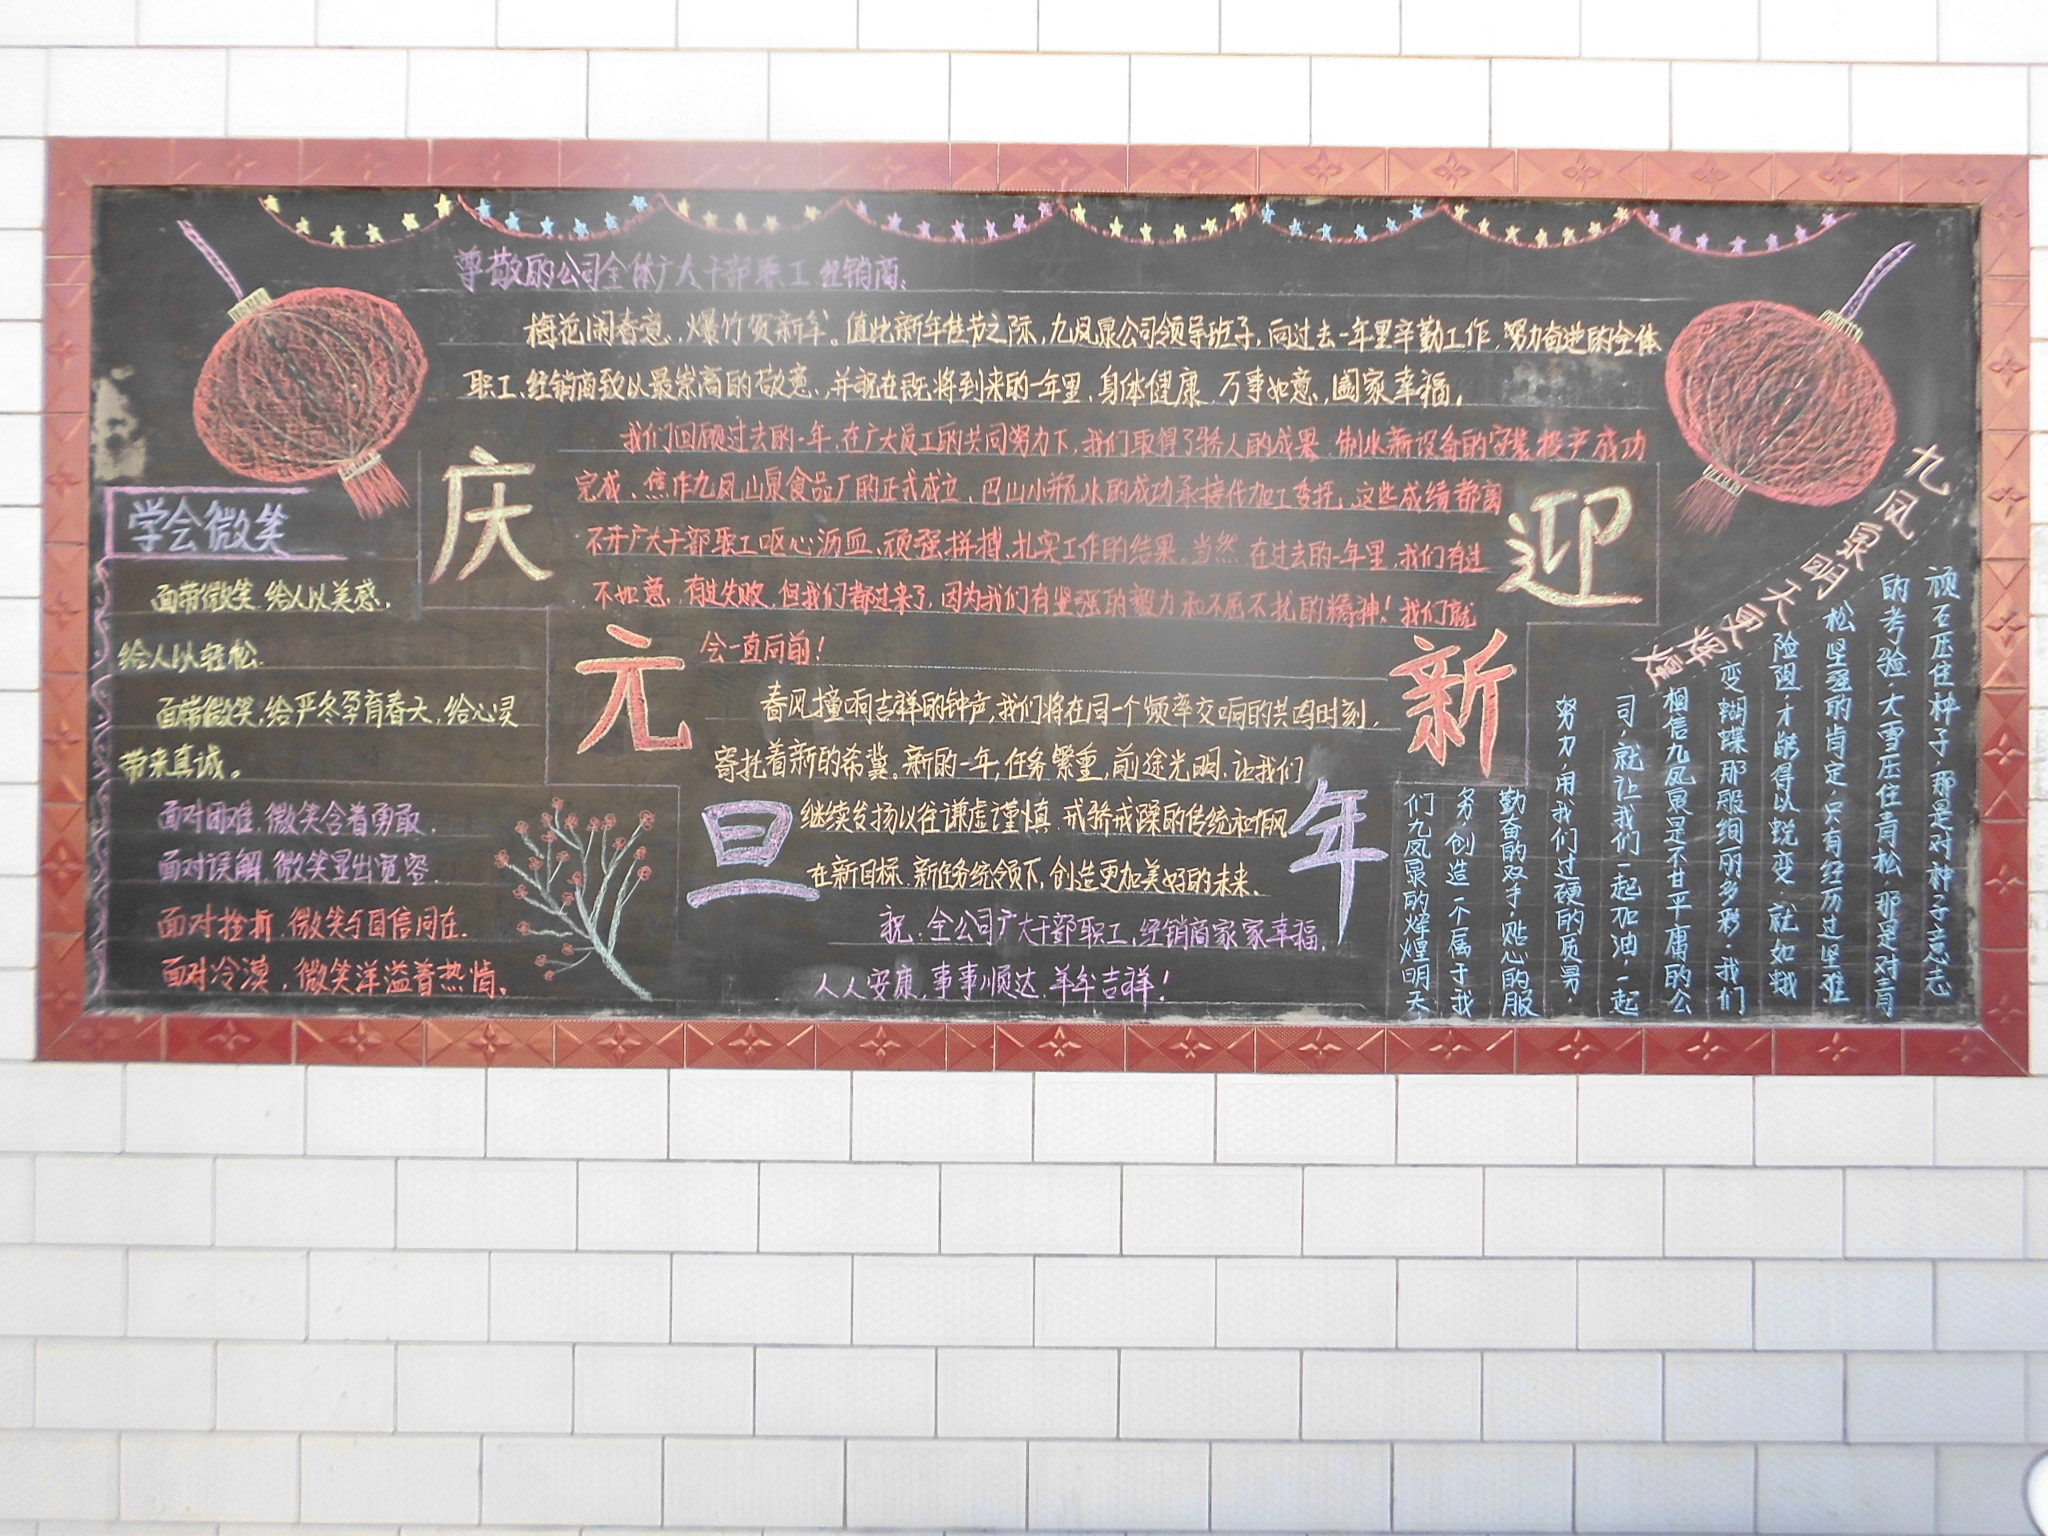 学会微笑
面带微笑,给人以美感,
给人以轻松.
面带微笑,给严冬孕育春天,给心灵
带来真诚。
面对困难,微笑含着勇敢.
面对误解,微笑显出宽容.
面对挫折,微笑与自信同在.
面对冷漠,微笑洋溢着热情。
庆
元
旦
迎
新
年
尊敬的公司全体广大干部职工、经销商:
梅花闹春意,爆竹贺新年。值此新年佳节之际,九凤泉公司领导班子,向过去一年里辛勤工作,努力奋进的全体
职工、经销商致以最崇高的敬意,并祝在既将到来的一年里,身体健康,万事如意,阖家幸福。
我们回顾过去的一年,在广大员工的共同努力下,我们取得了骄人的成果,制水新设备的安装投产成功
完成、焦作九凤山泉食品厂的正式成立、巴山小瓶水的成功承接代加工委托,这些成绩都离
不开广大干部职工呕心沥血、顽强拼搏、扎实工作的结果。当然,在过去的一年里,我们有过
不如意,有过失败,但我们都过来了,因为我们有坚强的毅力和不屈不扰的精神!我们就
会一直向前!
春风撞响吉祥的钟声,我们将在同一个频率交响的共鸣时刻,
寄托着新的希冀。新的一年,任务繁重,前途光明,让我们
继续发扬以往谦虚谨慎,戒骄戒躁的传统和作风
在新目标、新任务统领下,创造更加美好的未来.
祝:全公司广大干部职工、经销商家家幸福,
人人安康,事事顺达,羊年吉祥!
九凤泉明天更辉煌
顽石压住种子,那是对种子意志
的考验,大雪压住青松,那是对青
松坚强的肯定,只有经历过坚难
险阻才能得以蜕变,就如蛾
变蝴蝶那般绚丽多彩,我们
相信九凤泉是不甘平庸的公
司,就让我们一起加油,一起
努力,用我们过硬的质男,
勤奋的双手,贴心的服
务创造一个属于我
们九凤泉的辉煌明天.